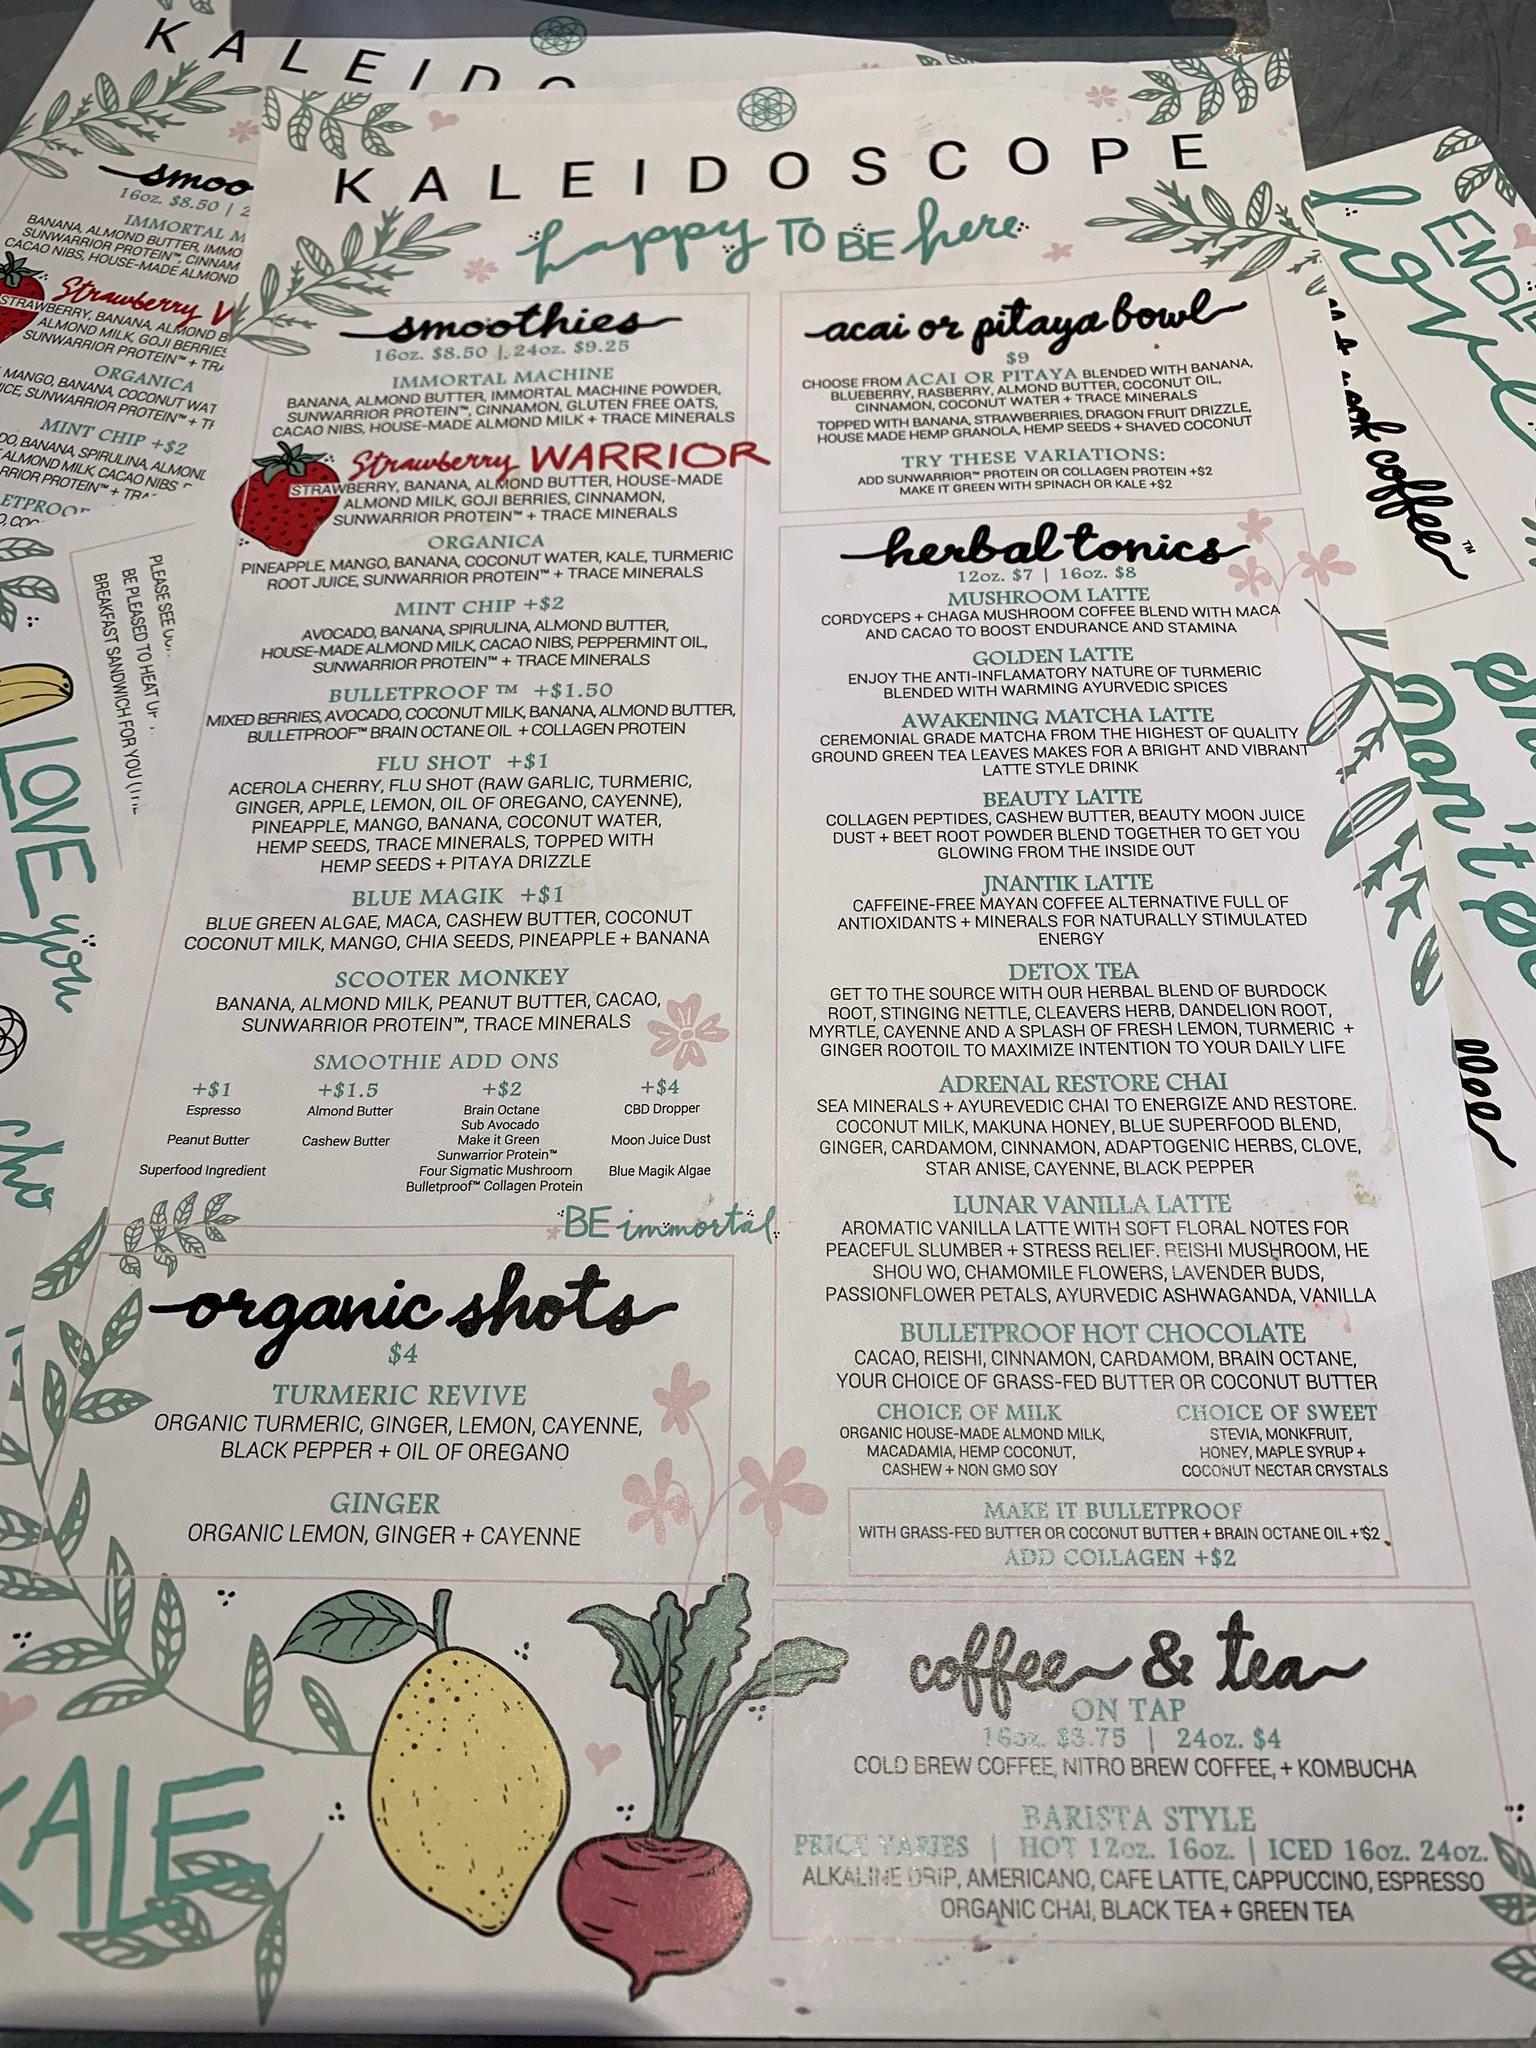 KALEIDO
smoo
16oz. $8.50 | 2
IMMORTAL M
BANANA, ALMOND BUTTER, IMMO
SUNWARRIOR PROTEIN™, CINNAM
CACAO NIBS, HOUSE-MADE ALMOND
Strawberry W
STRAWBERRY, BANANA, ALMOND B
ALMOND MILK, GOJI BERRIES
SUNWARRIOR PROTEIN™ + TRA
ORGANICA
MANGO, BANANA, COCONUT WAT
ICE, SUNWARRIOR PROTEIN™ + TR
MINT CHIP +$2
DO, BANANA, SPIRULINA, ALMOND
ALMOND MILK, CACAO NIBS
RRIOR PROTEIN™ + TRA
ETPROOF
PLEASE SEE OU
BE PLEASED TO HEAT UP
BREAKFAST SANDWICH FOR YOU (THE
LOVE you
cho
KALEIDOSCOPE
happy TO BE here
smoothies
16oz. $8.50 | 24oz. $9.25
IMMORTAL MACHINE
BANANA, ALMOND BUTTER, IMMORTAL MACHINE POWDER,
SUNWARRIOR PROTEIN™, CINNAMON, GLUTEN FREE OATS,
CACAO NIBS, HOUSE-MADE ALMOND MILK + TRACE MINERALS
Strawberry WARRIOR
STRAWBERRY, BANANA, ALMOND BUTTER, HOUSE-MADE
ALMOND MILK, GOJI BERRIES, CINNAMON,
SUNWARRIOR PROTEIN™ + TRACE MINERALS
ORGANICA
PINEAPPLE, MANGO, BANANA, COCONUT WATER, KALE, TURMERIC
ROOT JUICE, SUNWARRIOR PROTEIN™ + TRACE MINERALS
MINT CHIP +$2
AVOCADO, BANANA, SPIRULINA, ALMOND BUTTER,
HOUSE-MADE ALMOND MILK, CACAO NIBS, PEPPERMINT OIL,
SUNWARRIOR PROTEIN™ + TRACE MINERALS
BULLETPROOF™ +$1.50
MIXED BERRIES, AVOCADO, COCONUT MILK, BANANA, ALMOND BUTTER,
BULLETPROOF™ BRAIN OCTANE OIL + COLLAGEN PROTEIN
FLU SHOT +$1
ACEROLA CHERRY, FLU SHOT (RAW GARLIC, TURMERIC,
GINGER, APPLE, LEMON, OIL OF OREGANO, CAYENNE),
PINEAPPLE, MANGO, BANANA, COCONUT WATER,
HEMP SEEDS, TRACE MINERALS, TOPPED WITH
HEMP SEEDS + PITAYA DRIZZLE
BLUE MAGIK +$1
BLUE GREEN ALGAE, MACA, CASHEW BUTTER, COCONUT
COCONUT MILK, MANGO, CHIA SEEDS, PINEAPPLE + BANANA
SCOOTER MONKEY
BANANA, ALMOND MILK, PEANUT BUTTER, CACAO,
SUNWARRIOR PROTEIN™, TRACE MINERALS
SMOOTHIE ADD ONS
+$1 +$1.5 +$2 +$4
Espresso Almond Butter Brain Octane CBD Dropper
Sub Avocado
Peanut Butter Cashew Butter Make it Green Moon Juice Dust
Sunwarrior Protein™
Superfood Ingredient Four Sigmatic Mushroom Blue Magik Algae
Bulletproof™ Collagen Protein
BE immortal
organic shots
$4
TURMERIC REVIVE
ORGANIC TURMERIC, GINGER, LEMON, CAYENNE,
BLACK PEPPER + OIL OF OREGANO
GINGER
ORGANIC LEMON, GINGER + CAYENNE
KALE
acai or pitaya bowl
$9
CHOOSE FROM ACAI OR PITAYA BLENDED WITH BANANA,
BLUEBERRY, RASBERRY, ALMOND BUTTER, COCONUT OIL,
CINNAMON, COCONUT WATER + TRACE MINERALS
TOPPED WITH BANANA, STRAWBERRIES, DRAGON FRUIT DRIZZLE,
HOUSE MADE HEMP GRANOLA, HEMP SEEDS + SHAVED COCONUT
TRY THESE VARIATIONS:
ADD SUNWARRIOR™ PROTEIN OR COLLAGEN PROTEIN +$2
MAKE IT GREEN WITH SPINACH OR KALE +$2
herbal tonics
12oz. $7 | 16oz. $8
MUSHROOM LATTE
CORDYCEPS + CHAGA MUSHROOM COFFEE BLEND WITH MACA
AND CACAO TO BOOST ENDURANCE AND STAMINA
GOLDEN LATTE
ENJOY THE ANTI-INFLAMATORY NATURE OF TURMERIC
BLENDED WITH WARMING AYURVEDIC SPICES
AWAKENING MATCHA LATTE
CEREMONIAL GRADE MATCHA FROM THE HIGHEST OF QUALITY
GROUND GREEN TEA LEAVES MAKES FOR A BRIGHT AND VIBRANT
LATTE STYLE DRINK
BEAUTY LATTE
COLLAGEN PEPTIDES, CASHEW BUTTER, BEAUTY MOON JUICE
DUST + BEET ROOT POWDER BLEND TOGETHER TO GET YOU
GLOWING FROM THE INSIDE OUT
JNANTIK LATTE
CAFFEINE-FREE MAYAN COFFEE ALTERNATIVE FULL OF
ANTIOXIDANTS + MINERALS FOR NATURALLY STIMULATED
ENERGY
DETOX TEA
GET TO THE SOURCE WITH OUR HERBAL BLEND OF BURDOCK
ROOT, STINGING NETTLE, CLEAVERS HERB, DANDELION ROOT,
MYRTLE, CAYENNE AND A SPLASH OF FRESH LEMON, TURMERIC +
GINGER ROOTOIL TO MAXIMIZE INTENTION TO YOUR DAILY LIFE
ADRENAL RESTORE CHAI
SEA MINERALS + AYUREVEDIC CHAI TO ENERGIZE AND RESTORE.
COCONUT MILK, MAKUNA HONEY, BLUE SUPERFOOD BLEND,
GINGER, CARDAMOM, CINNAMON, ADAPTOGENIC HERBS, CLOVE,
STAR ANISE, CAYENNE, BLACK PEPPER
LUNAR VANILLA LATTE
AROMATIC VANILLA LATTE WITH SOFT FLORAL NOTES FOR
PEACEFUL SLUMBER + STRESS RELIEF. REISHI MUSHROOM, HE
SHOU WO, CHAMOMILE FLOWERS, LAVENDER BUDS,
PASSIONFLOWER PETALS, AYURVEDIC ASHWAGANDA, VANILLA
BULLETPROOF HOT CHOCOLATE
CACAO, REISHI, CINNAMON, CARDAMOM, BRAIN OCTANE,
YOUR CHOICE OF GRASS-FED BUTTER OR COCONUT BUTTER
CHOICE OF MILK
ORGANIC HOUSE-MADE ALMOND MILK,
MACADAMIA, HEMP COCONUT,
CASHEW + NON GMO SOY
CHOICE OF SWEET
STEVIA, MONKFRUIT,
HONEY, MAPLE SYRUP +
COCONUT NECTAR CRYSTALS
MAKE IT BULLETPROOF
WITH GRASS-FED BUTTER OR COCONUT BUTTER + BRAIN OCTANE OIL +$2
ADD COLLAGEN +$2
coffee & tea
ON TAP
16oz. $3.75 | 24oz. $4
COLD BREW COFFEE, NITRO BREW COFFEE, + KOMBUCHA
BARISTA STYLE
PRICE VARIES | HOT 12oz. 16oz. | ICED 16oz. 24oz.
ALKALINE DRIP, AMERICANO, CAFE LATTE, CAPPUCCINO, ESPRESSO
ORGANIC CHAI, BLACK TEA + GREEN TEA
ENDLE
love
coffee™
Don't